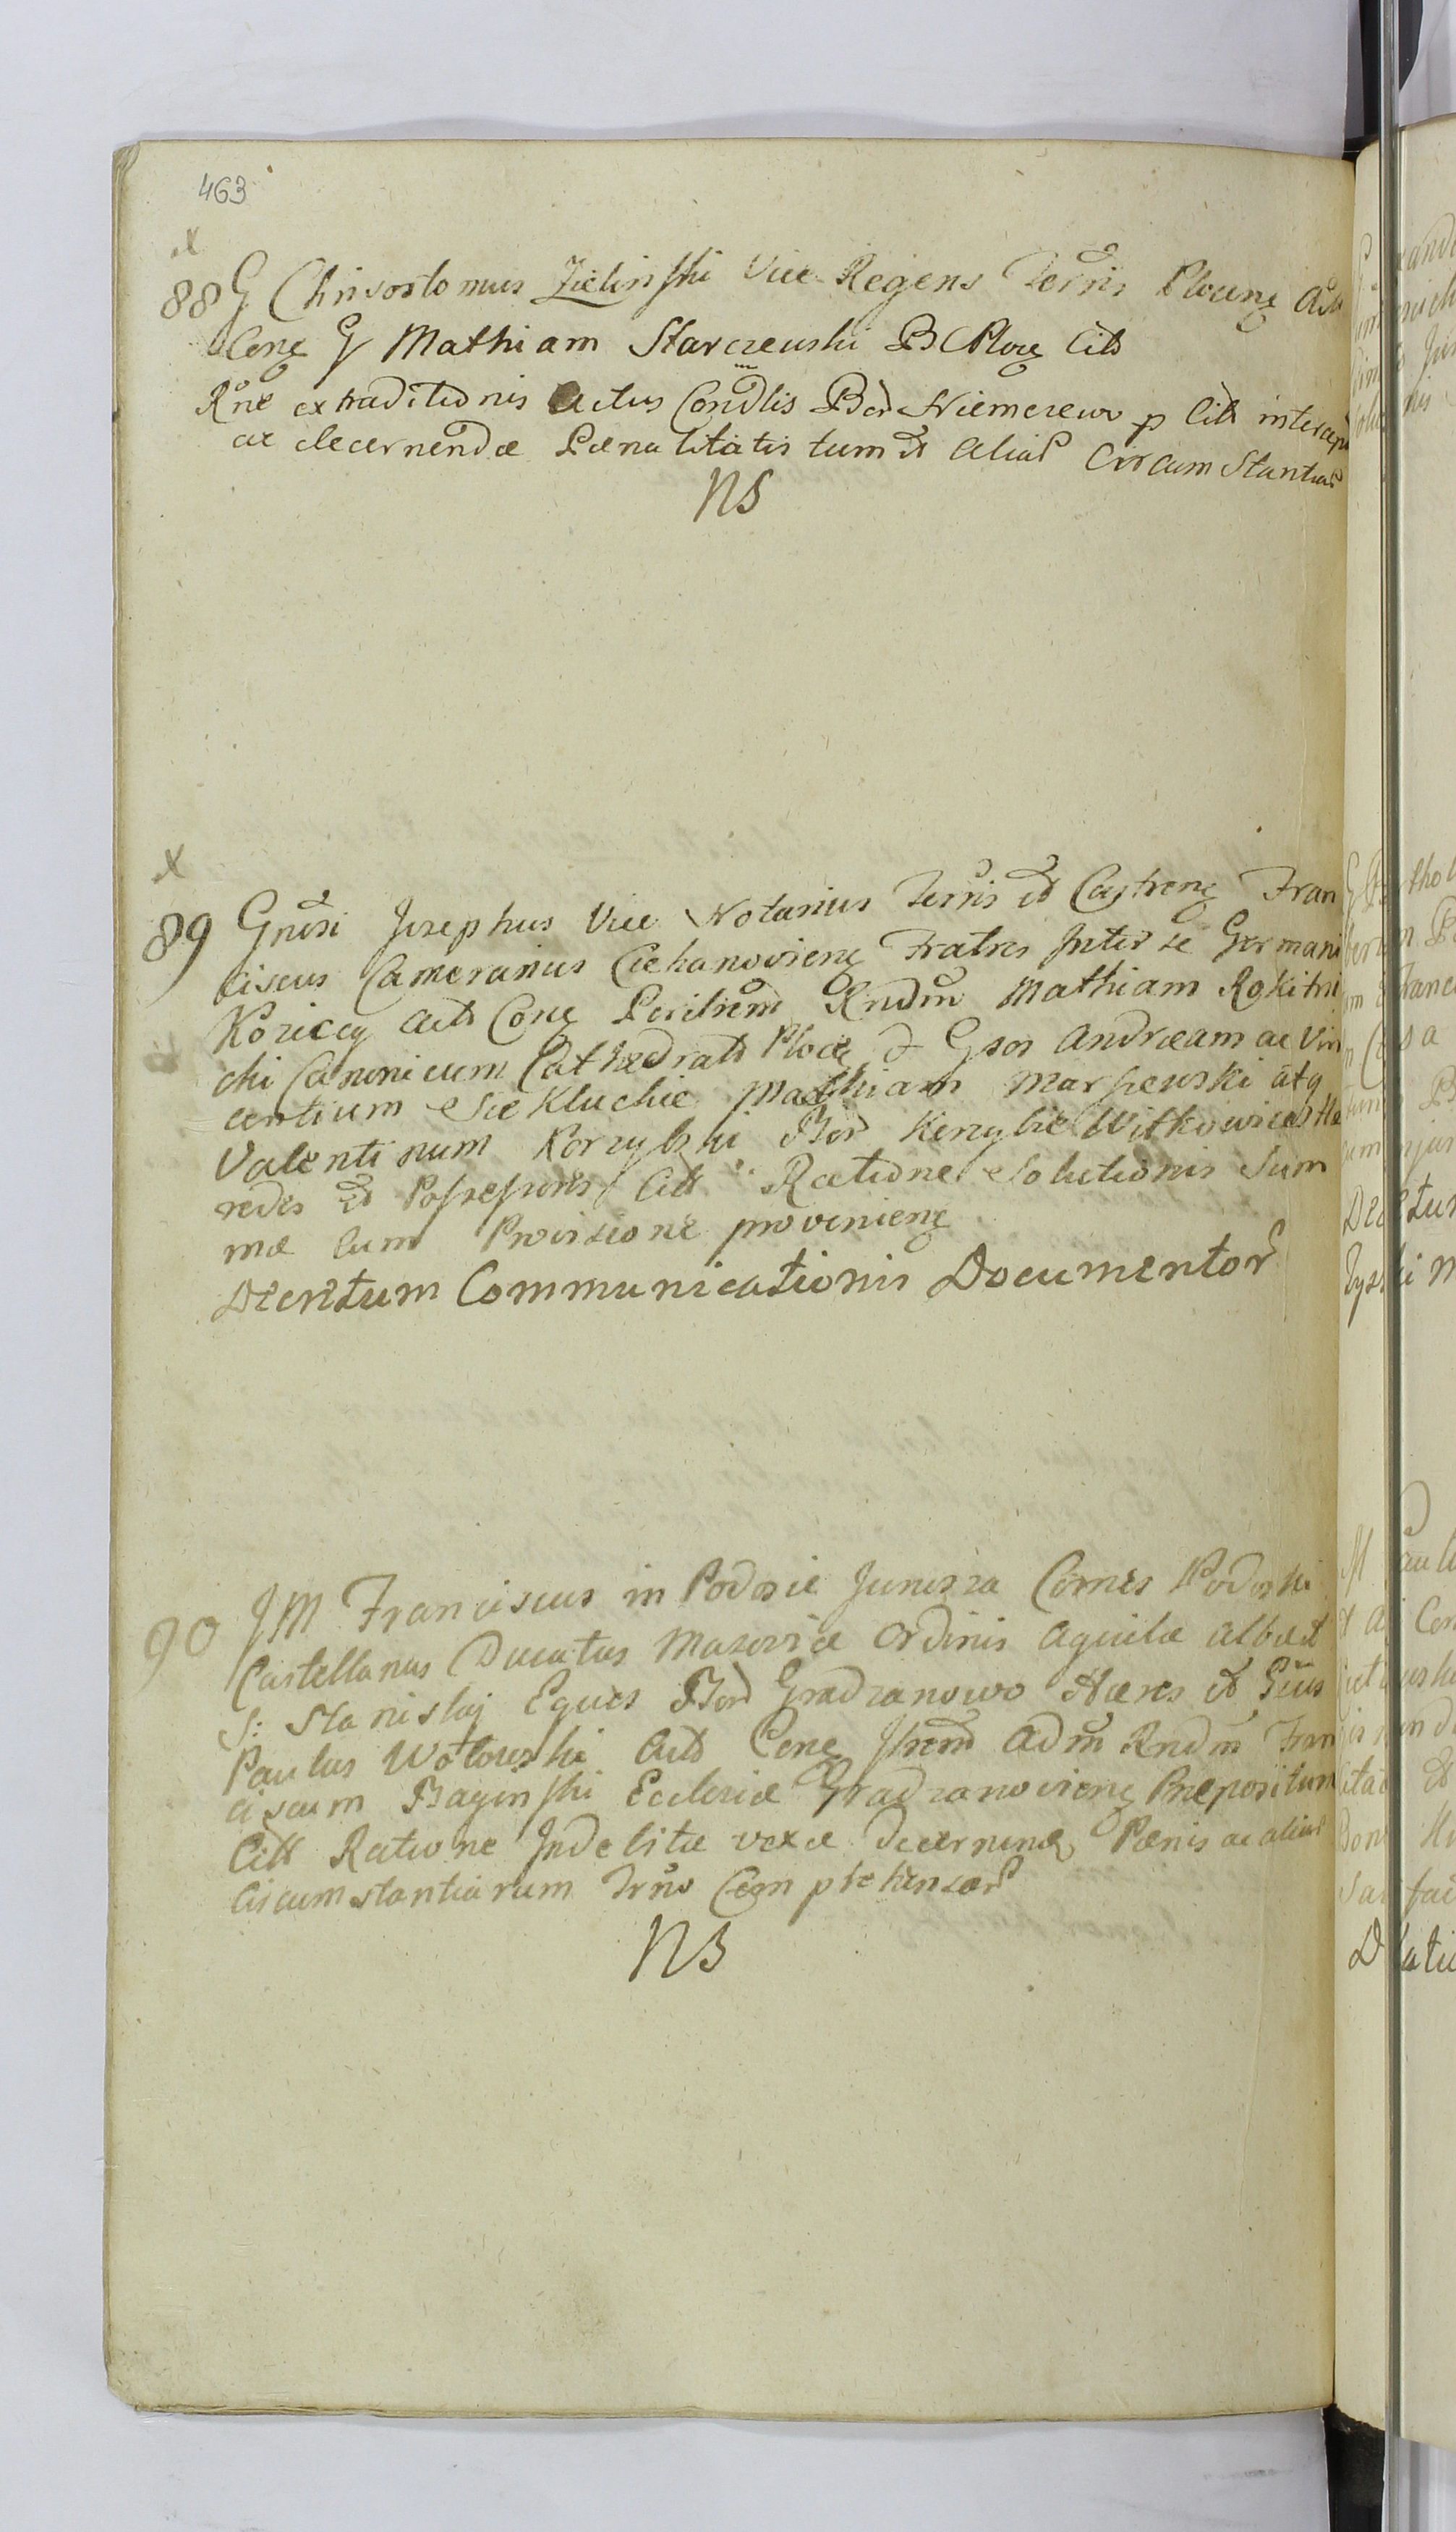 463
x
88 G Chrisostomus Zielinski Vice Regens Terris Plocens Act
Cens G Mathiam Starczewski B C Ploc Citt
Rne extraditionis Actus Condlis Bor Niemczewo p Citt intercep
ac decernendæ Pænalitatis tum et alias Circumstantias
NS
x
89 Gnosi Josephus Vice Notarius Terris et Castrens Fran
ciscus Camerarius Ciechanoviens Fratres Inter se Germani
Koziccy Act Cons Perilrem Rndum Mathiam Rokitni
cki Canonicum Cathedral Ploc & Gsos Andræam ac Vin
centium Siekluckie Mathiam Marszewski atq
Valentinum Korzybski Bor Kerzybie Witkowice Hæ
redes et Possessores Citt Ratione Solutionis Sum
mæ Cum Provisione proveniens
Decretum Communicationis Documentor
90 JM Franciscus in Podosie Junosza Comes Podoski
Castellanus Ducatus Masoviæ Ordinis Aquilæ albæ et
S: Stanislaj Eques Bor Gradzanowo Hæres et Gsus
Paulus Wołowski Act Cens Adm Rndm Fran
ciscum Baginski Ecclesiæ Gradzanoviens Præpositum
Citt Ratione Indebitæ vexæ decernend Pænis ac alias
Circumstantiarum Trno Comprehensar
NS